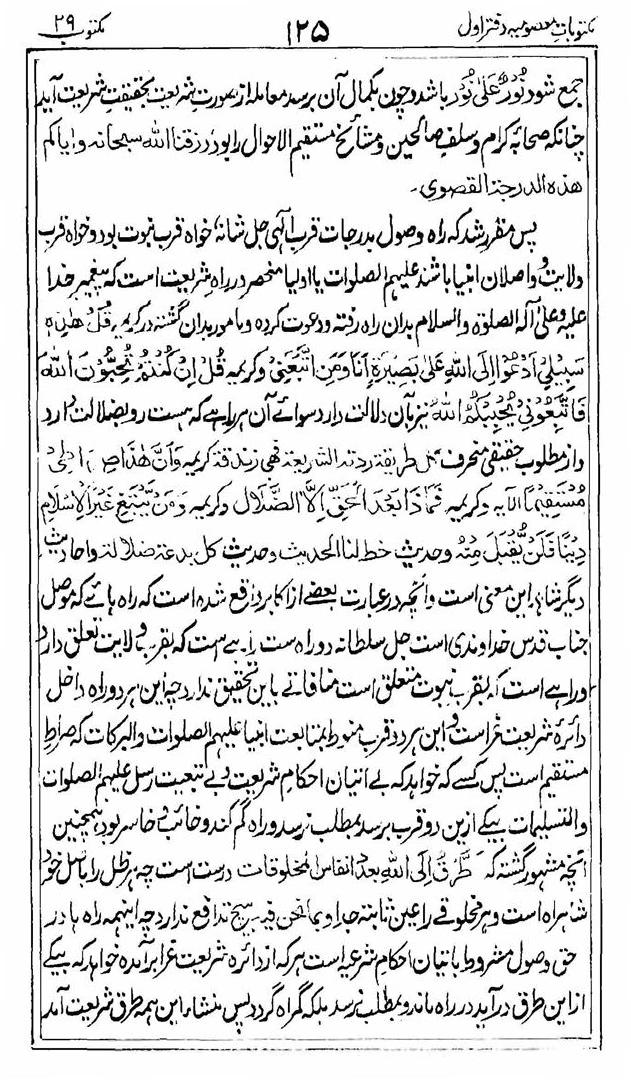 مکتوبات معصومیہ دفتر اول ۱۲۵ مکتوب ۲۹
جمع شود نُورٌ عَلیٰ نُور باشد و چون بکمال آن برسد معاملہ از صورت شریعت بحقیقتِ شریعت آید
چنانکہ صحابۂ کرام و سلفِ صالحین و مشائخ مستقیم الاحوال را بود رزقنا اللہ سبحانہ و ایاکم
ھذہ الدرجۃ القصوی۔
پس مقرر شد کہ راہ وصول بدرجات قرب الٰہی جل شانہ، خواہ قرب نبوت بود و خواہ قرب
ولایت و واصلان انبیا باشند علیہم الصلوات یا اولیا منحصر در راہ شریعت است کہ پیغمبر خدا
علیہ وعلیٰ آلہ الصلوٰۃ والسلام بدان راہ رفتہ و دعوت کردہ و مامور بدان گشتہ در کریمہ قُلْ ھٰذِہٖ
سَبِیْلِیْ اَدْعُوْا اِلَی اللہِ عَلیٰ بَصِیْرَۃٍ اَنَا وَمَنِ اتَّبَعَنِیْ و کریمہ قُلْ اِنْ کُنْتُمْ تُحِبُّوْنَ اللہَ
فَاتَّبِعُوْنِیْ یُحْبِبْکُمُ اللہُ نیز بآن دلالت دارد سوائے آن ہر راہے کہ ہست رو بضلالت دارد
و از مطلوب حقیقی منحرف کل طریقۃ ردتہ الشریعۃ فھی زندقۃ کریمہ وَاَنَّ ھٰذَا صِرَاطِیْ
مُسْتَقِیْمًا الآیہ و کریمہ فَمَاذَا بَعْدَ الْحَقِّ اِلَّا الضَّلَالُ و کریمہ وَمَنْ یَّبْتَغِ غَیْرَ الْاِسْلَامِ
دِیْنًا فَلَنْ یُّقْبَلَ مِنْہُ و حدیث خط لنا الحدیث و حدیث کل بدعۃ ضلالۃ و احادیث
دیگر شاہد این معنی است و آنچہ در عبارت بعضے از اکابر واقع شدہ است کہ راہ ہائے کہ موصل
جناب قدس خداوندی است جل سلطانہ دو راہ ست راہے ست کہ بقرب ولایت تعلق دارد
و راہے است کہ بقرب نبوت متعلق است منافاتے باین تحقیق ندارد چہ این ہر دو راہ داخل
دائرۂ شریعت غراست و این ہر دو قرب منوط بمتابعت انبیا علیہم الصلوات والبرکات کہ صراط
مستقیم است پس کسے کہ خواہد کہ بے اتیان احکام شریعت و بے تبعیت رسل علیہم الصلوات
والتسلیمات بیکے ازین دو قرب برسد بمطلب نرسد و راہ گم کند و خائب و خاسر بود ہمچنین
آنچہ مشہور گشتہ کہ طُرُقٌ اِلَی اللہِ بعدد انفاس المخلوقات درست است چہ ہر ظل را باصل خود
شاہراہ است و ہر مخلوقے را عین ثابتہ جدا و بما نحن فیہ ہیچ تدافع ندارد چہ اینہمہ راہ ہا در
حق وصول مشروط باتیان احکام شرعیہ است ہر کہ از دائرہ شریعت غرا برآمدہ خواہد کہ بیکے
ازین طرق درآید در راہ ماند و بمطلب نرسد بلکہ گمراہ گردد پس منشاء این ہمہ طرق شریعت آمد